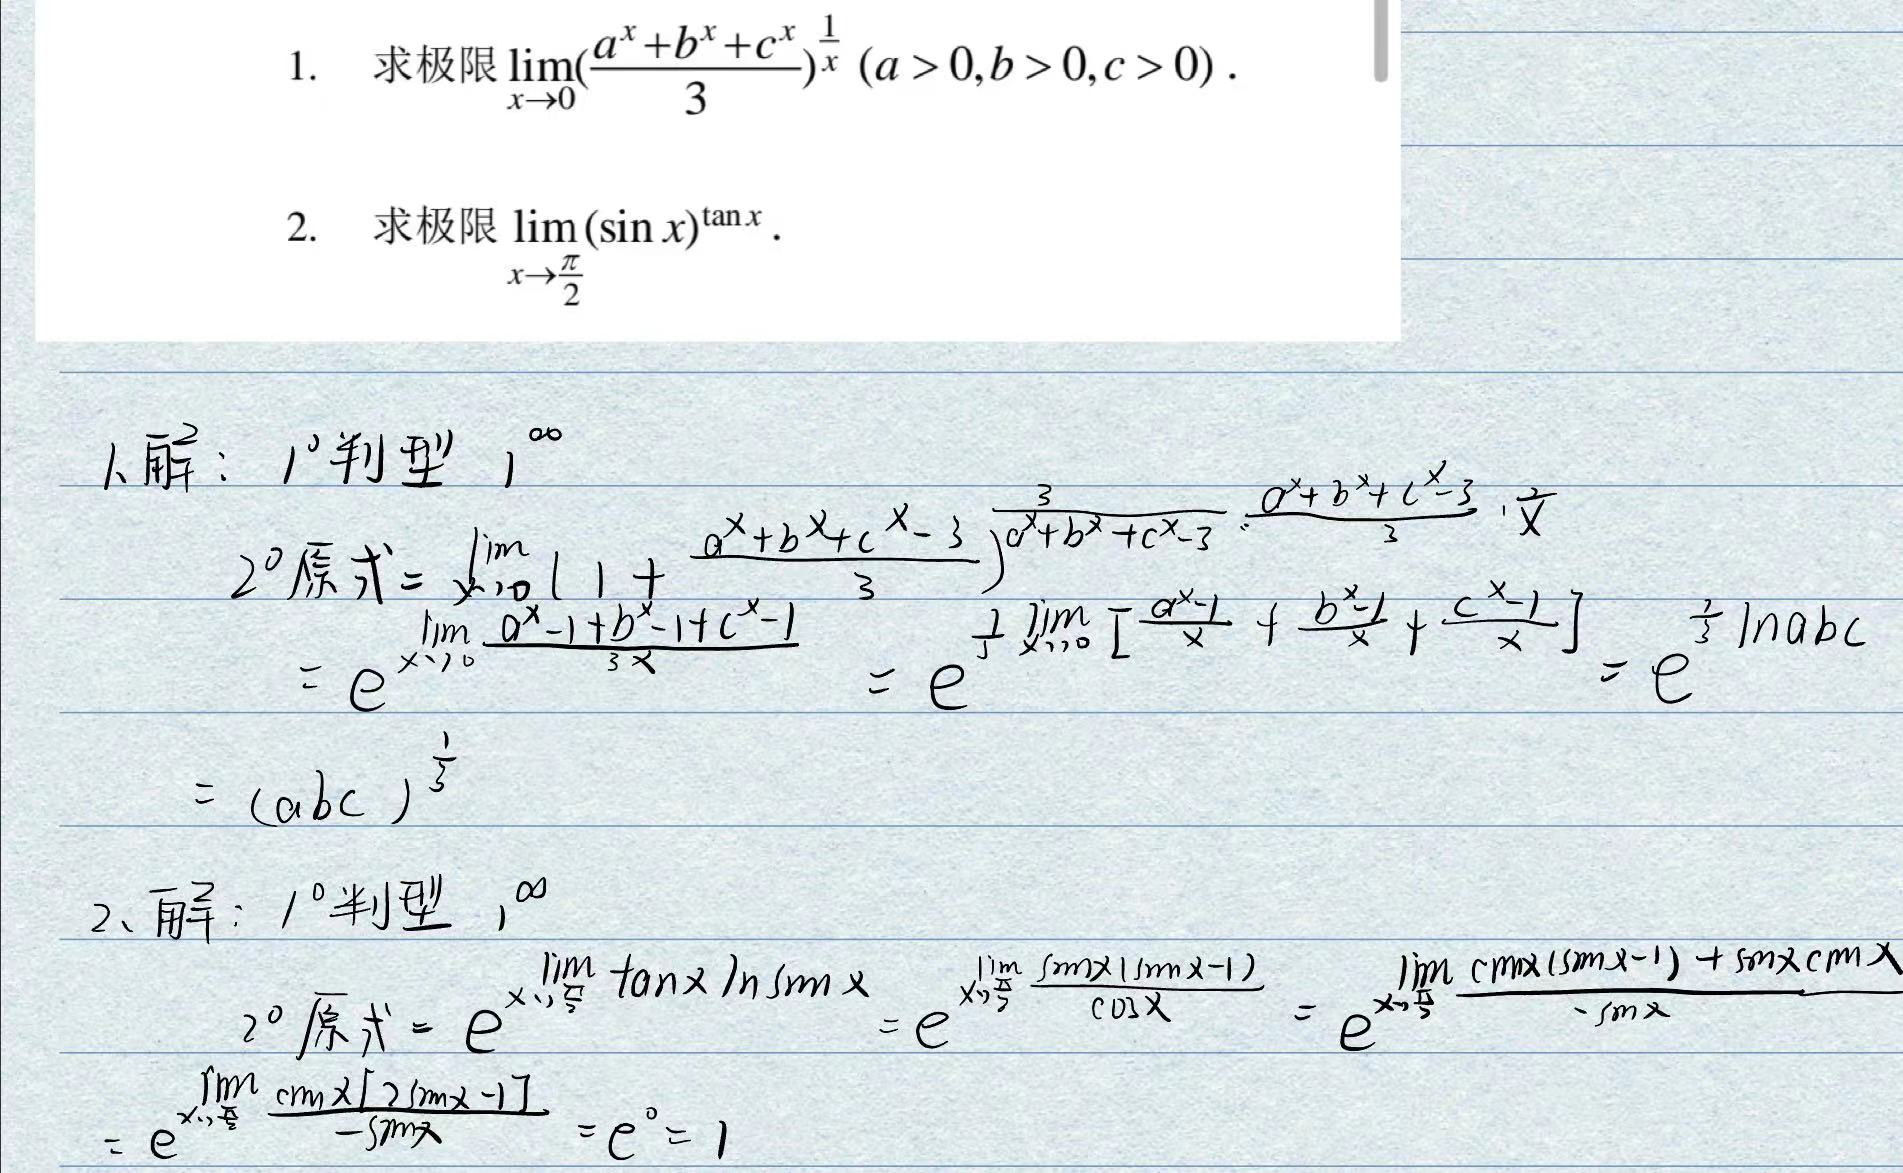 1. 求极限 $\lim_{x \to 0} (\frac{a^x + b^x + c^x}{3})^{\frac{1}{x}}$ (a > 0, b > 0, c > 0) .
2. 求极限 $\lim_{x \to \frac{\pi}{2}} (\sin x)^{\tan x}$ .
1、解: 1° 判型 $1^\infty$
2° 原式 = $\lim_{x \to 0} (1 + \frac{a^x + b^x + c^x - 3}{3})^{\frac{3}{a^x + b^x + c^x - 3} \cdot \frac{a^x + b^x + c^x - 3}{3} \cdot \frac{1}{x}}$
= $e^{\lim_{x \to 0} \frac{a^x - 1 + b^x - 1 + c^x - 1}{3x}}$ = $e^{\frac{1}{3} \lim_{x \to 0} [\frac{a^x - 1}{x} + \frac{b^x - 1}{x} + \frac{c^x - 1}{x}]}$ = $e^{\frac{1}{3} \ln abc}$
= $(abc)^{\frac{1}{3}}$
2、解: 1° 判型 $1^\infty$
2° 原式 = $e^{\lim_{x \to \frac{\pi}{2}} \tan x \ln \sin x}$ = $e^{\lim_{x \to \frac{\pi}{2}} \frac{\sin x (\sin x - 1)}{\cos x}}$ = $e^{\lim_{x \to \frac{\pi}{2}} \frac{\cos x (\sin x - 1) + \sin x \cos x}{-\sin x}}$
= $e^{\lim_{x \to \frac{\pi}{2}} \frac{\cos x [2 \sin x - 1]}{-\sin x}}$ = $e^0$ = 1